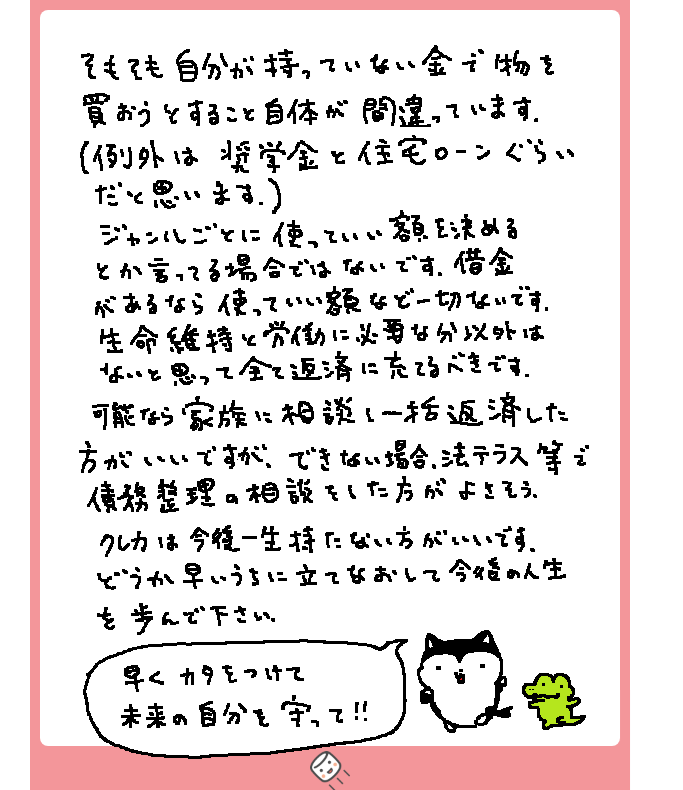 そもそも自分が持っていない金で物を
買おうとすること自体が間違っています.
(例外は 奨学金と住宅ローンぐらい
だと思います.)
ジャンルごとに使っていい額を決める
とか言ってる場合ではないです. 借金
があるなら使っていい額など一切ないです.
生命維持と労働に必要な分以外は
ないと思って全て返済に充てるべきです.
可能なら家族に相談し一括返済した
方がいいですが、できない場合、法テラス等で
債務整理の相談をした方がよさそう.
クレカは今後一生持たない方がいいです.
どうか早いうちに立てなおして今後の人生
を歩んで下さい.
早くカタをつけて
未来の自分を守って!!